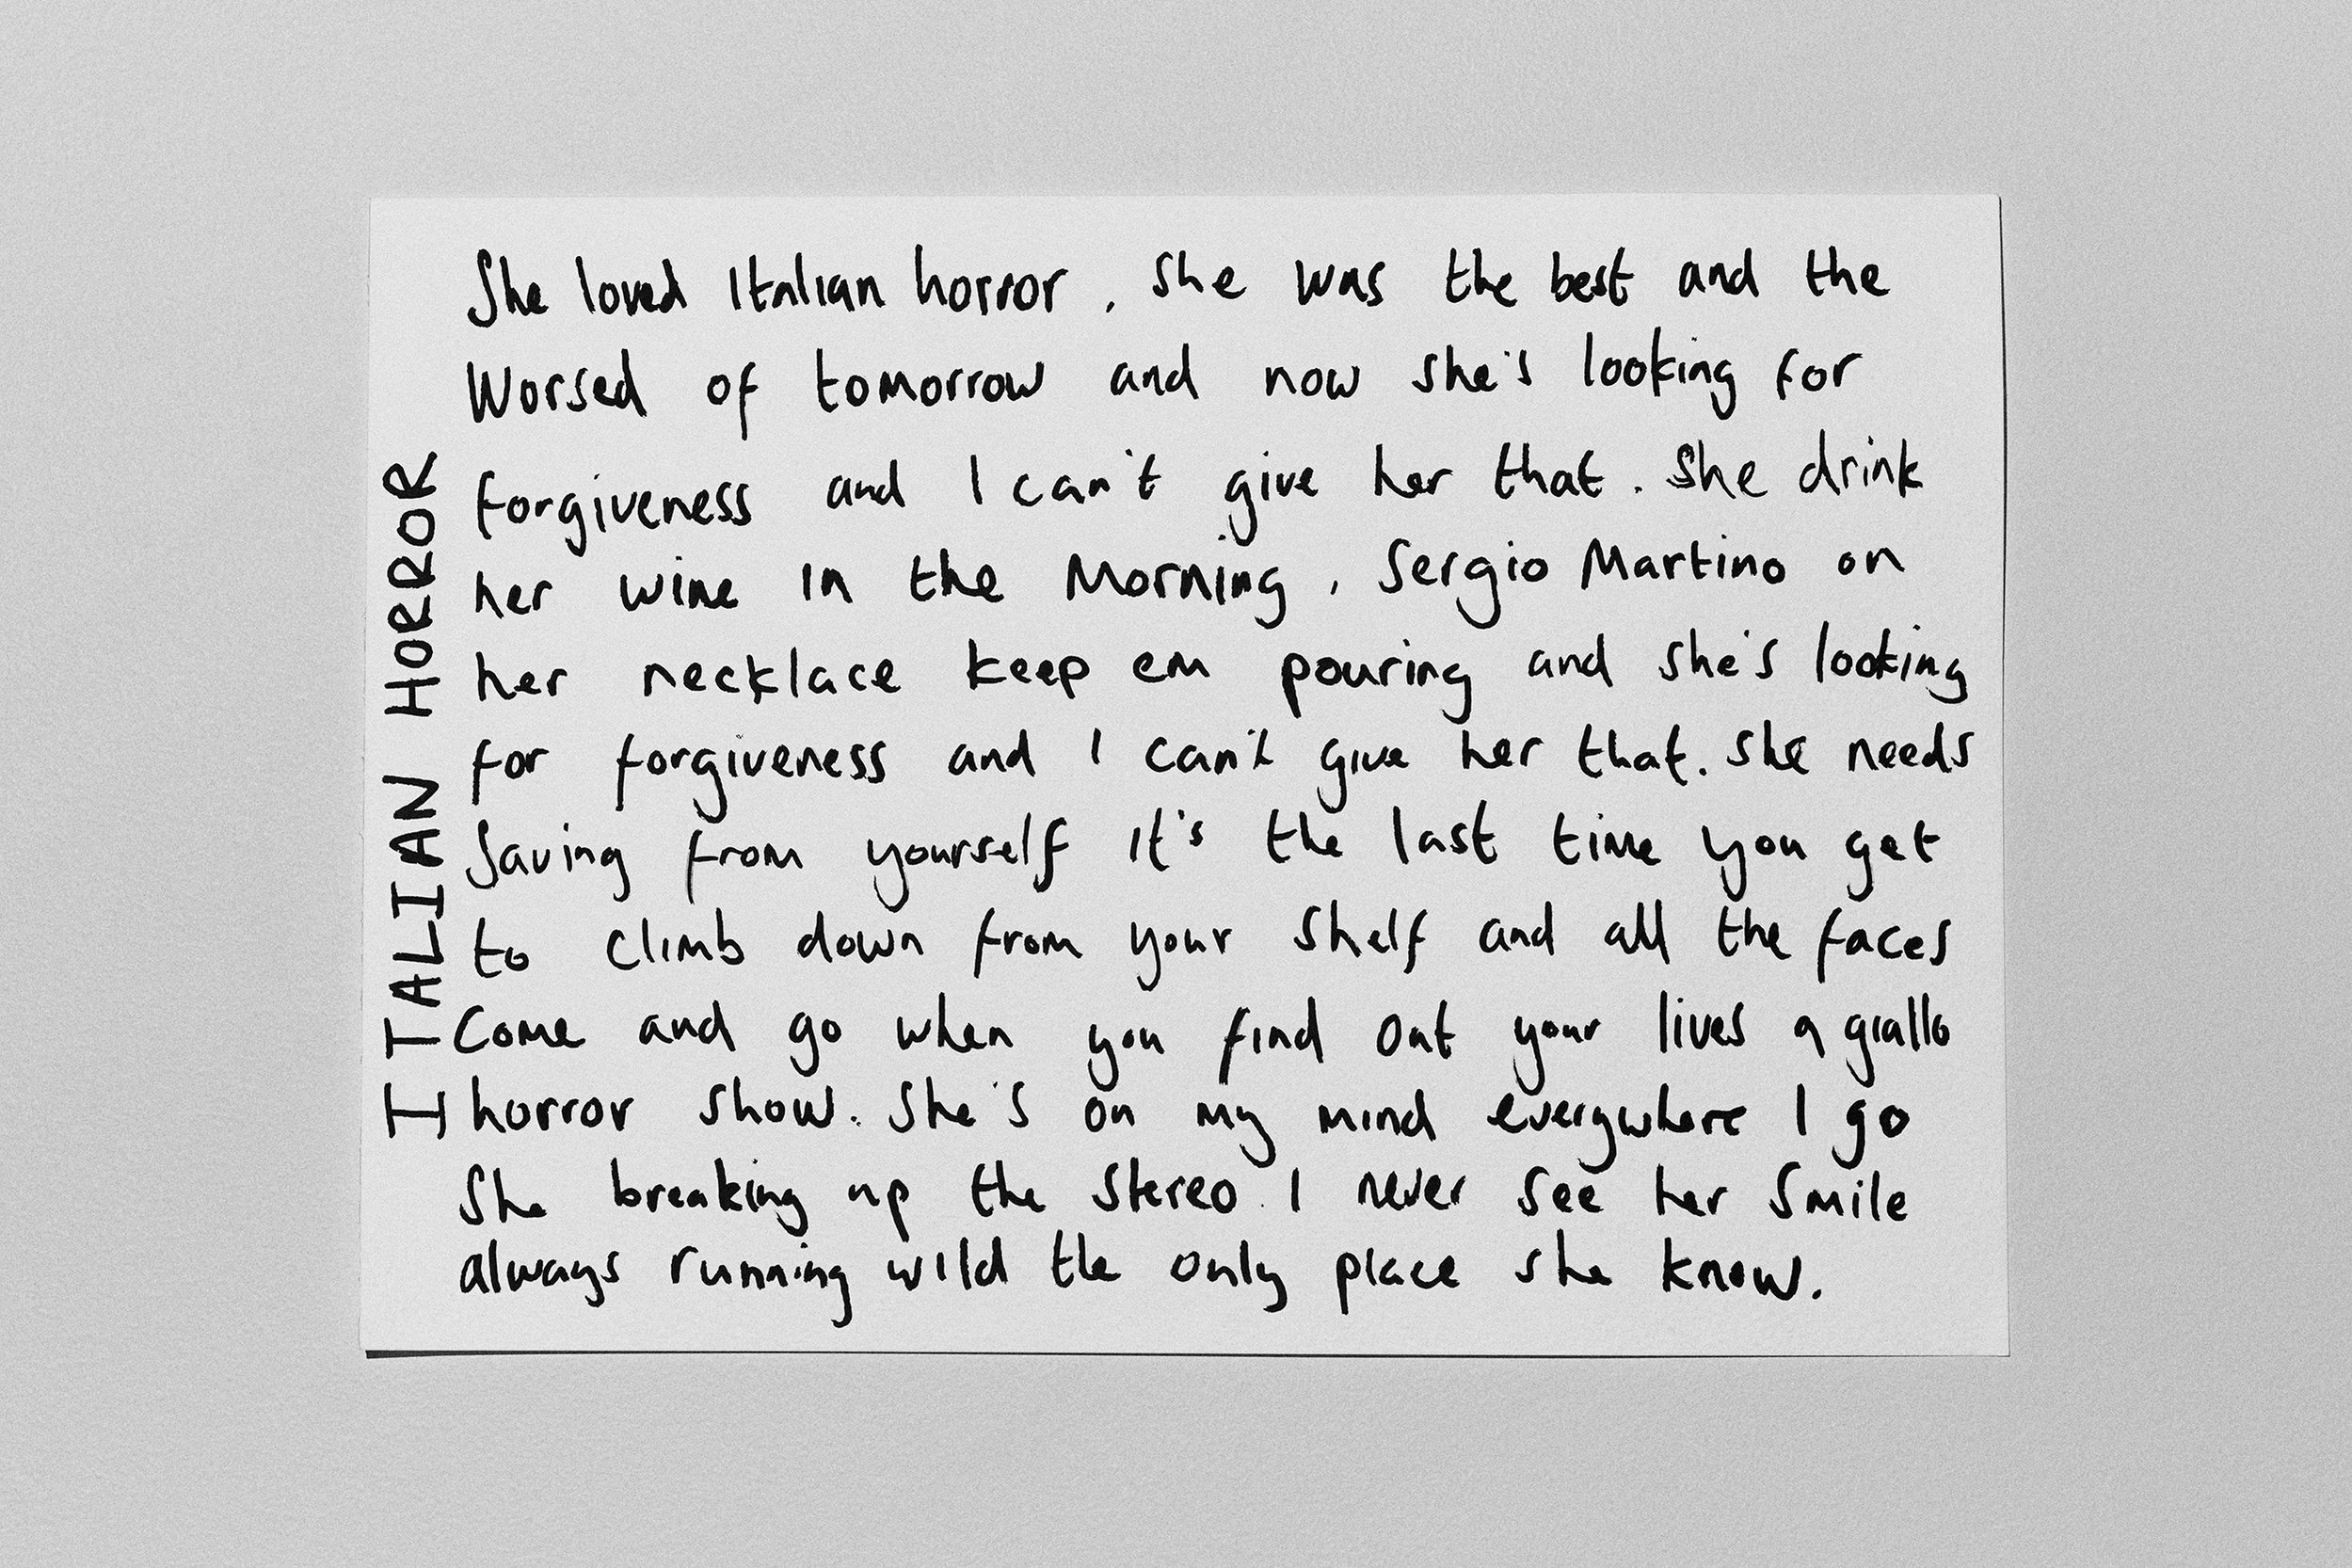 ITALIAN HORROR
She loved Italian horror. She was the best and the
Worsed of tomorrow and now she's looking for
forgiveness and I can't give her that. She drink
her wine in the Morning, Sergio Martino on
her necklace keep em pouring and she's looking
for forgiveness and I can't give her that. She needs
Saving from yourself it's the last time you get
to climb down from your shelf and all the faces
Come and go when you find out your lives a giallo
horror show. She's on my mind everywhere I go
She breaking up the stereo. I never see her smile
always running wild the only place she know.